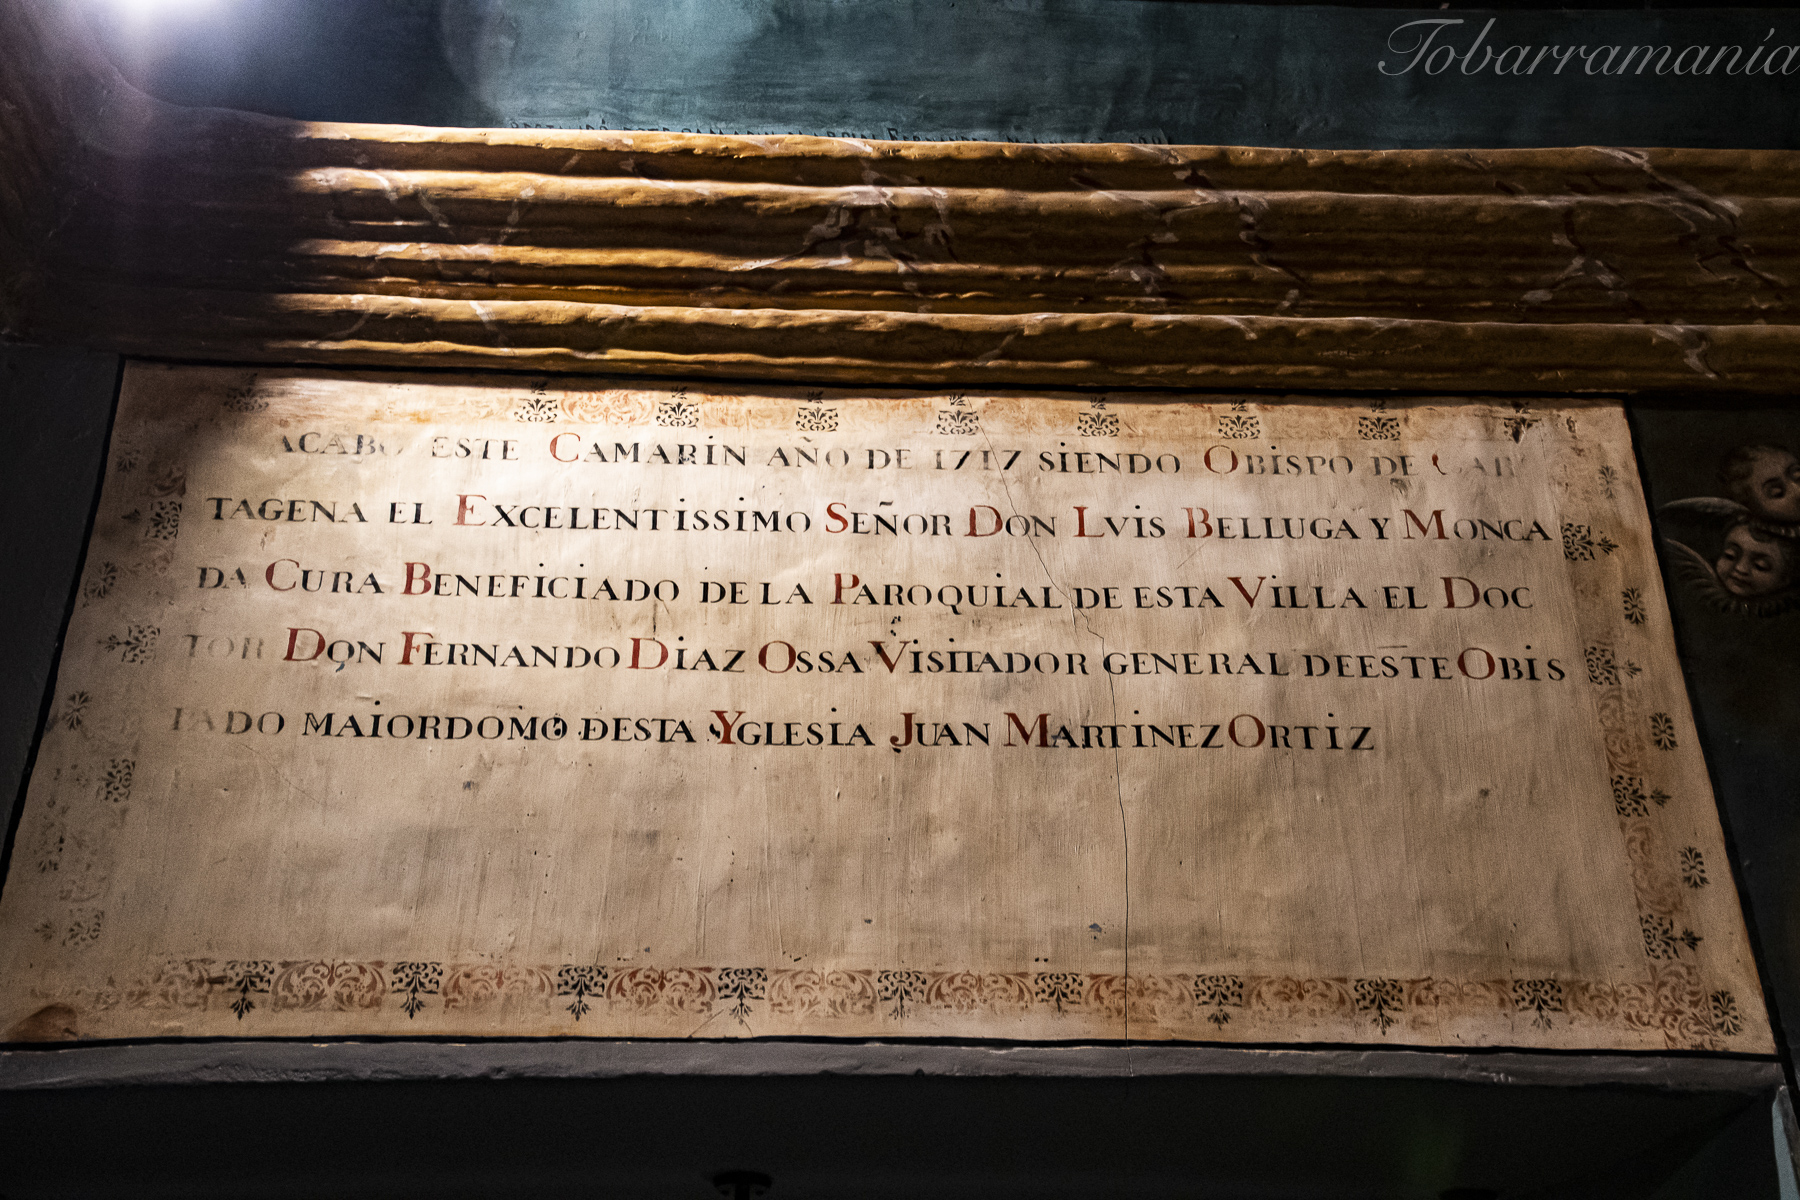 Tobarramanía
ACABO ESTE CAMARIN AÑO DE 1717 SIENDO OBISPO DE CAR
TAGENA EL EXCELENTISSIMO SEÑOR DON LVIS BELLUGA Y MONCA
DA CURA BENEFICIADO DE LA PAROQUIAL DE ESTA VILLA EL DOC
TOR DON FERNANDO DIAZ OSSA VISITADOR GENERAL DE ESTE OBIS
PADO MAIORDOMO DESTA YGLESIA JUAN MARTINEZ ORTIZ